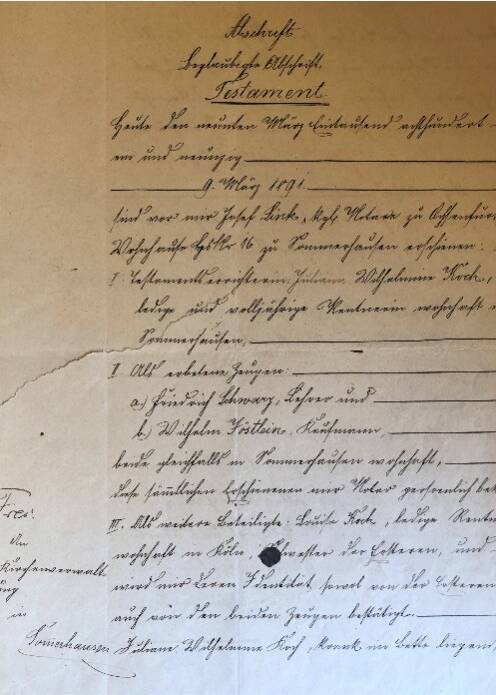 Abschrift
Beglaubigte Abschrift.
Testament.
Heute den neunten März Eintausend achthundert
ein und neunzig
9. März 1891.
sind vor mir Josef Link, kgl. Notar zu Ochsenfurt
Wohnhause HsNr 16 zu Sommerhausen erschienen:
I Testamentserrichterin: Juliana Wilhelmine Koch,
ledige und volljährige Rentnerin wohnhaft
Sommerhausen,
II Als erbetene Zeugen:
a) Friedrich Schwarz, Lehrer und
b.) Wilhelm Köstlein, Kaufmann,
beide gleichfalls in Sommerhausen wohnhaft,
diese sämtlichen Erschienenen mir Notar persönlich
III. Als weitere Beteiligte: Louise Koch, ledige
wohnhaft in Köln, Schwester der Ersteren, und
wird mir deren Identität sowol von der Ersteren
auch von den beiden Zeugen bestätigt.
An
Kirchenverwalt
ung
in
Somerhausen
Juliane Wilhelmine Koch, krank im Bette liegend,